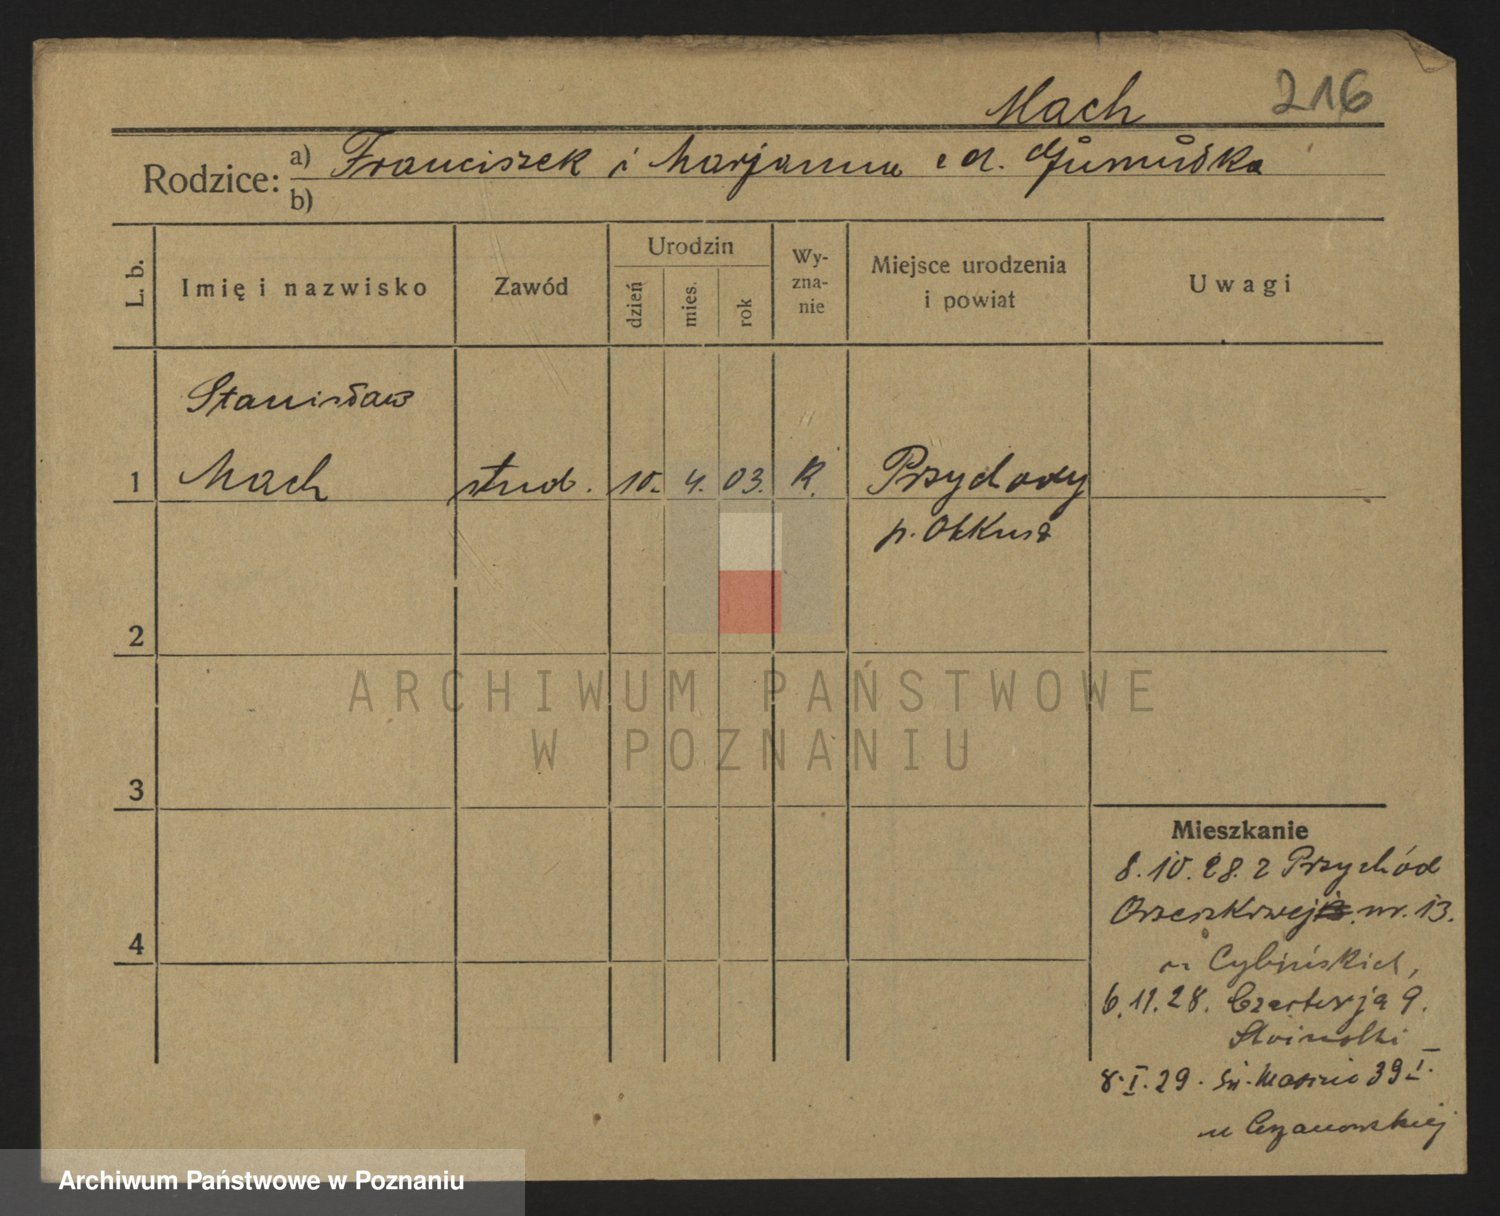 Mach
216
Rodzice: a) Franciszek i Marjanna z d.
b)
L. b.
Imię i nazwisko
Zawód
Urodzin
dzień
mies.
rok
Wy-
zna-
nie
Miejsce urodzenia
i powiat
Uwagi
Stanisław
1 Mach stud. 10. 4. 03. K. Przychody
p. Olkusz
2
ARCHIWUM PAŃSTWOWE
W POZNANIU
3
4
Mieszkanie
8.10.28. z Przychód
Orzeszkowej nr. 13.
u Cybińskich,
6.11.28. 9.
8.I.29. Św. Marcin 39 I.
u
Archiwum Państwowe w Poznaniu